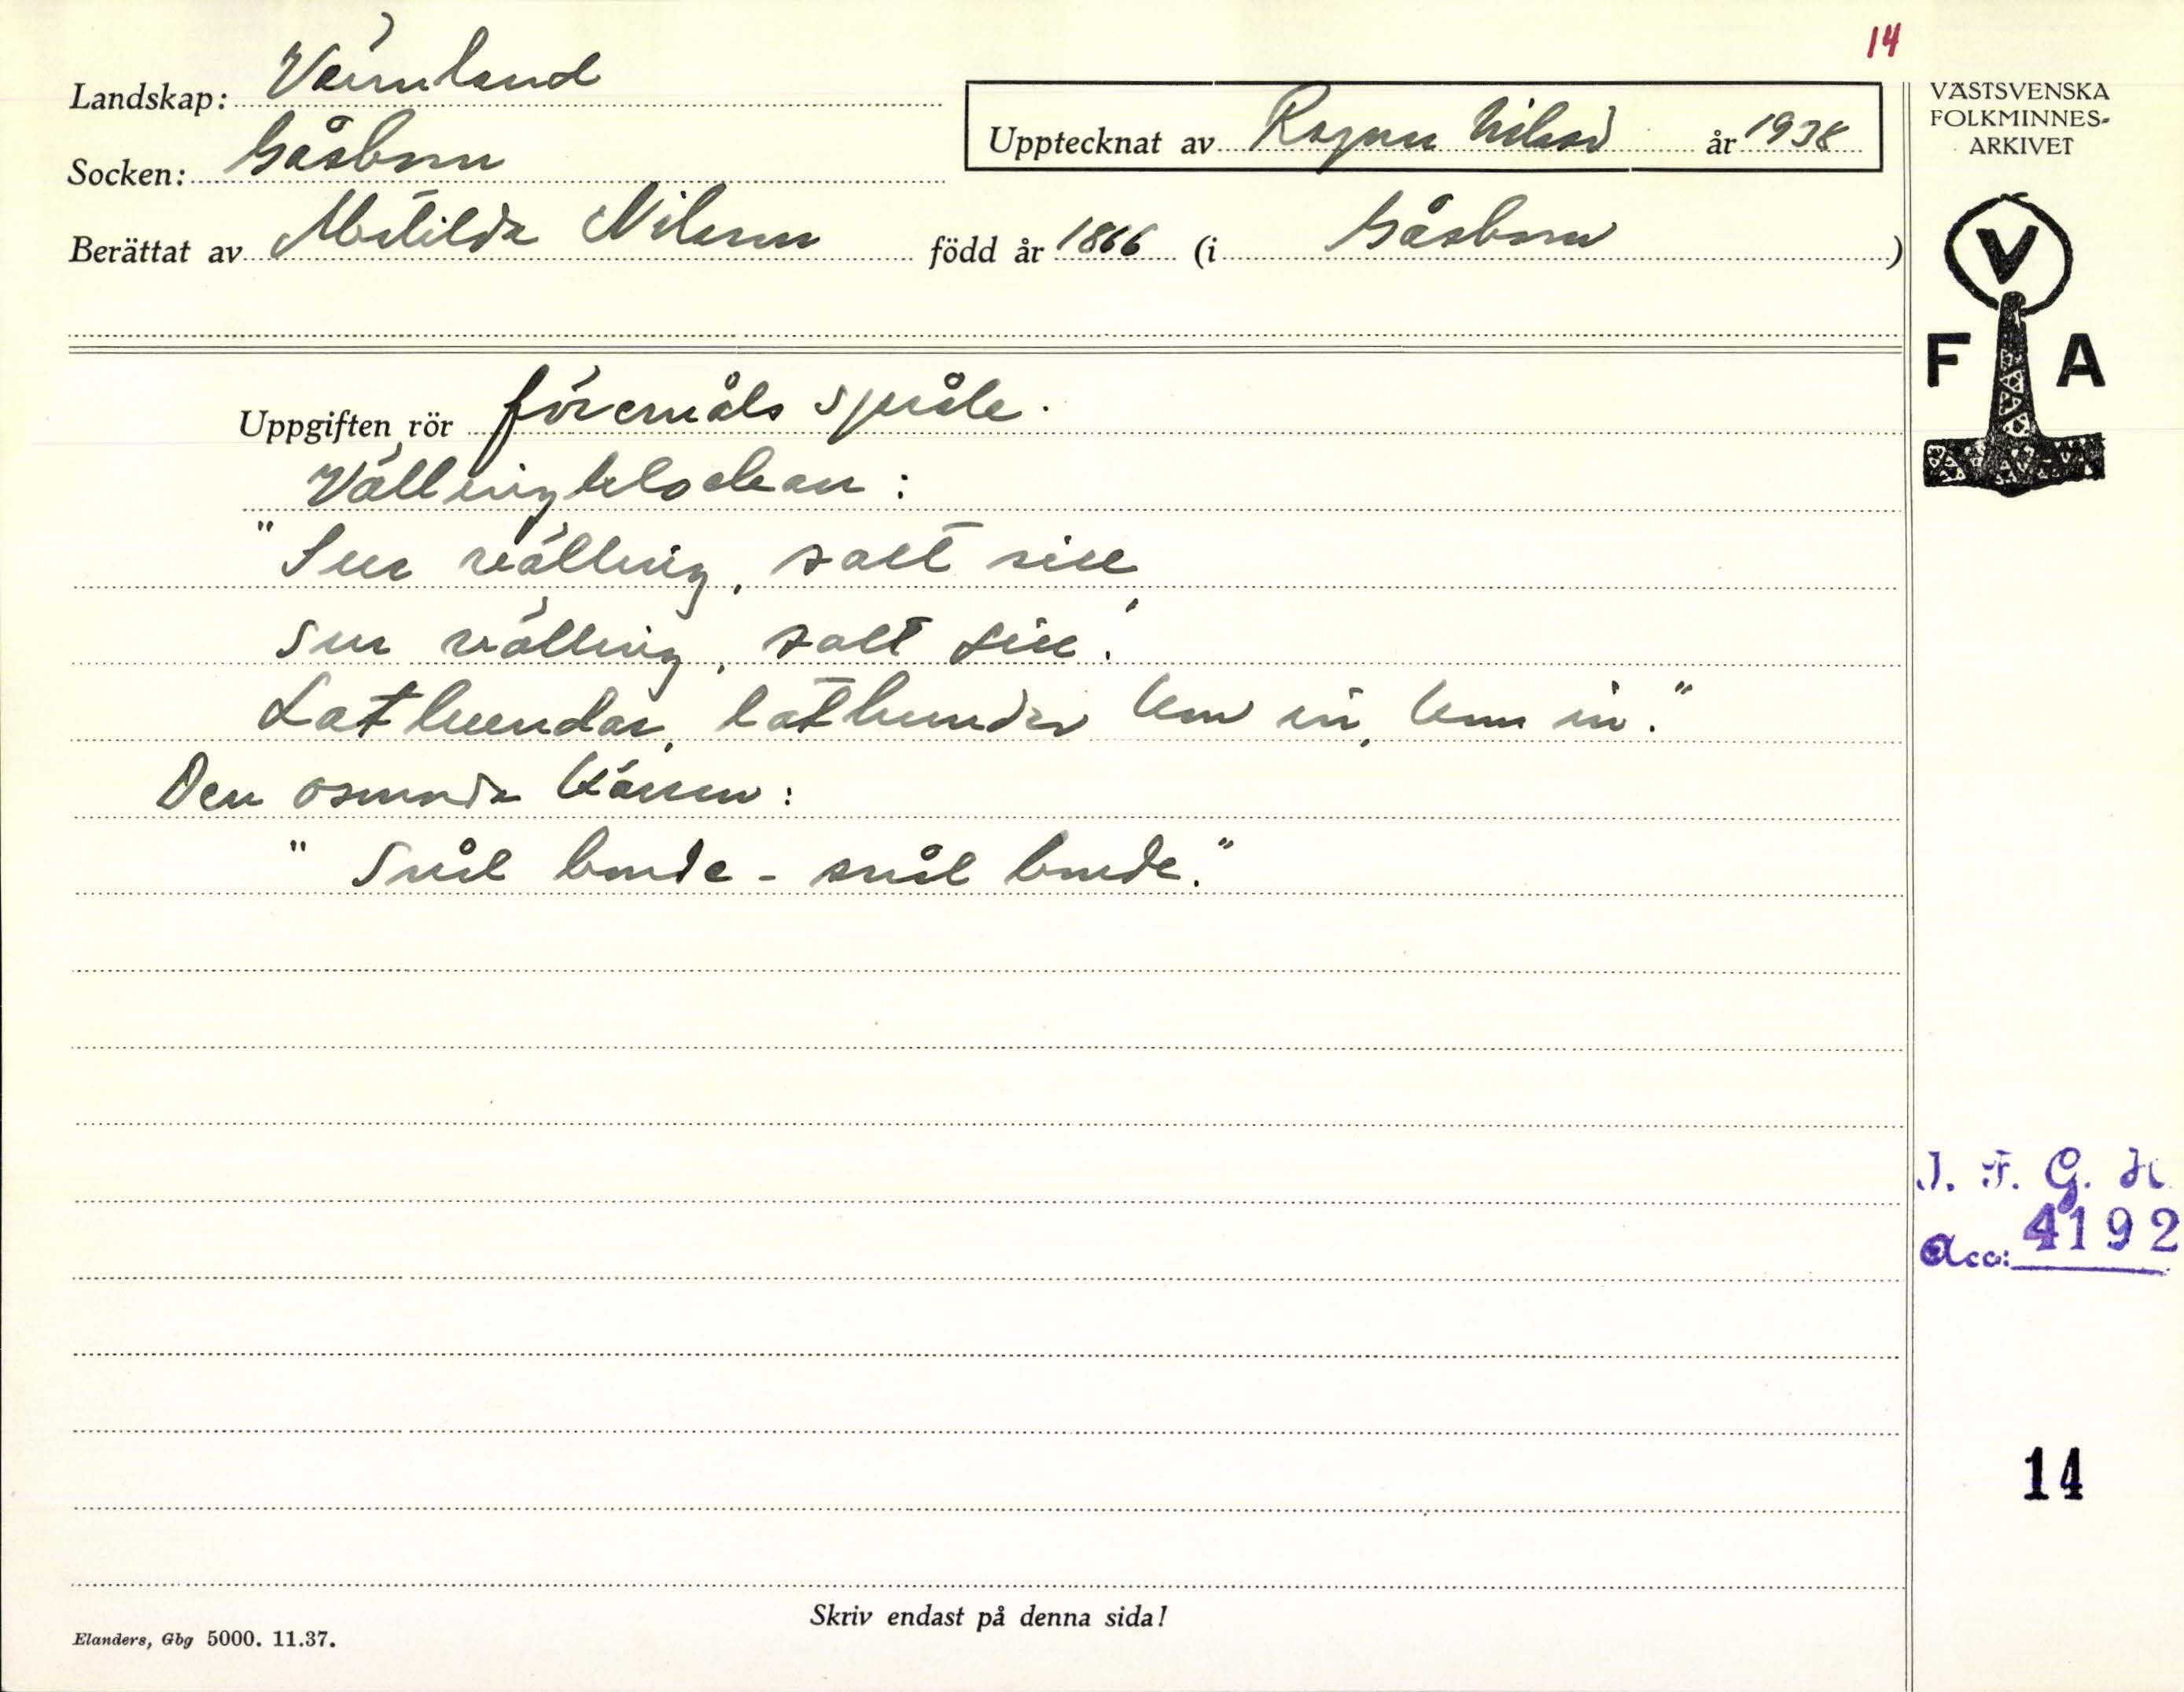 14
Landskap: Värmland
Socken: Gåsborn
Upptecknat av Ragnar Nilsson år 1938
Berättat av Matilda Nilsson född år 1866 (i Gåsborn)
Uppgiften rör föremåls språk.
Vällingklockan:
"Sur välling, salt sill,
sur välling, salt sill.
Lathundar, lathundar kom in, kom in."
Den osmorda kärran:
" Snål bonde - snål bonde."
Skriv endast på denna sida!
Elanders, Gbg 5000. 11.37.
VÄSTSVENSKA
FOLKMINNES-
ARKIVET
V
F A
I. F. G. H.
Acc: 4192
14